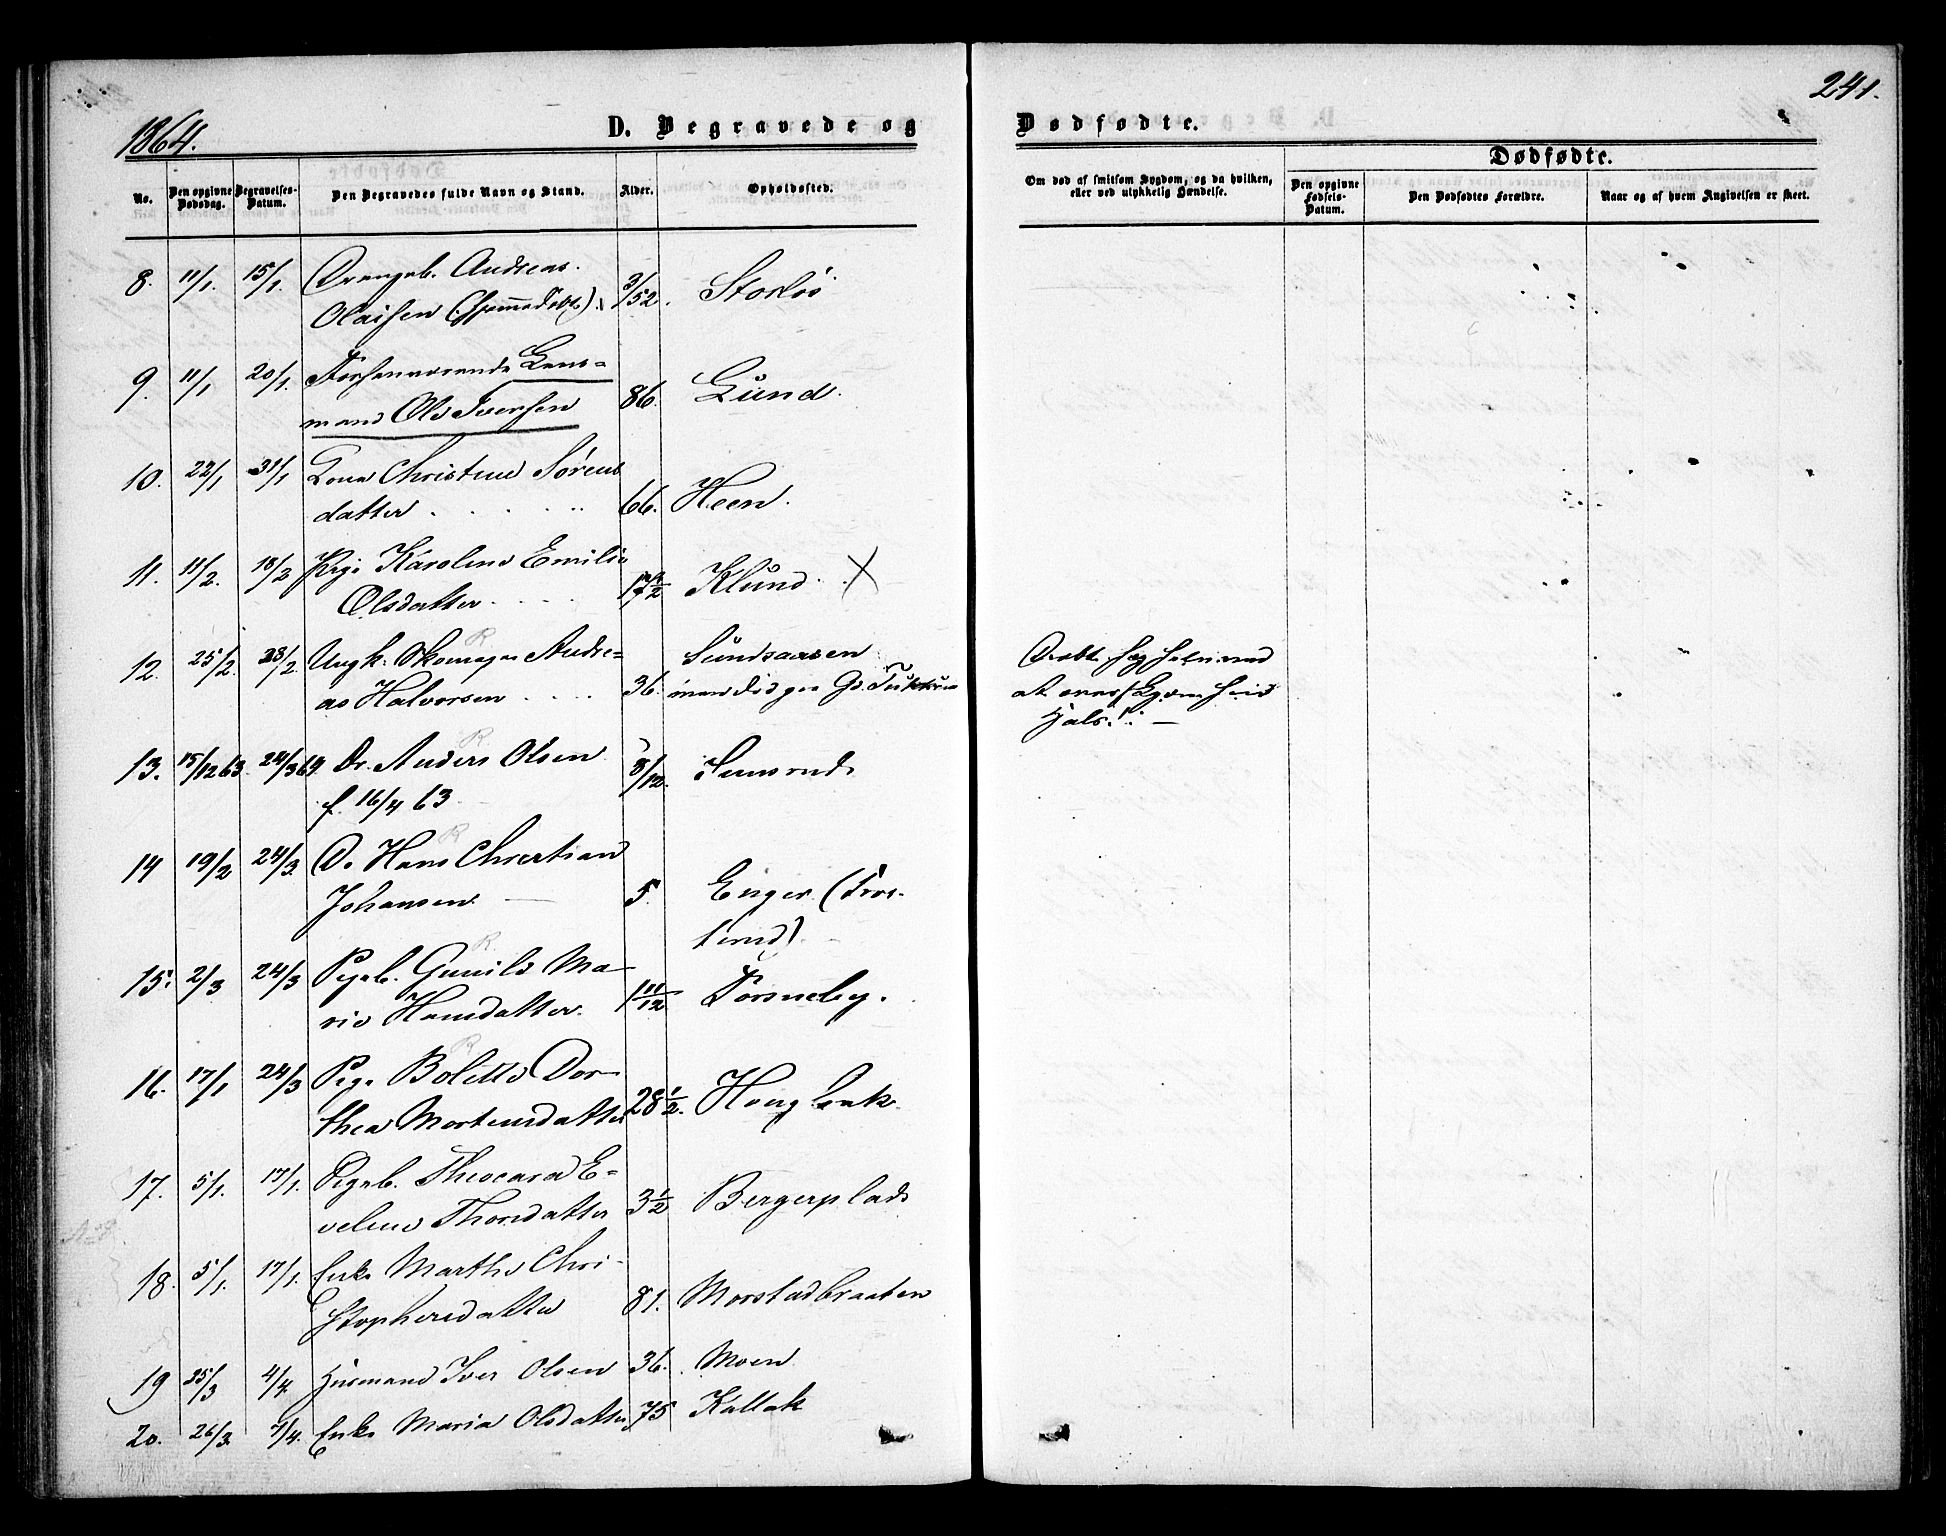 241.
1864.
D. Begravede og Dødfødte.
Dødfødte.
No.
Den opgivne Dødsdag.
Begravelses-Datum.
Den Begravedes fulde Navn og Stand.
Alder.
Opholdssted.
Om død af smitsom Sygdom, og da hvilken, eller ved ulykkelig Hændelse.
Den opgivne Fødsels-Datum.
Den Dødfødtes Forældre.
Naar og af hvem Angivelsen er skeet.
8. 11/1. 15/1. Drengeb. Andreas
Olaisen (Hjemmedøbt) 3/52. Storlös
9. 11/1 20/1. Forhenværende Lens-
mand Ole Iversen 86. Lund.
10. 22/1 31/1 Kone Christine Sørens
datter 66. Heen.
11. 11/2. 18/2 Pige Karoline Emilie
Olsdatter 17 1/2 Klund. X
12. 25/2. 28/2. Ungk. Skomager Andre-
as Halvorsen 36. Sundsaasen
Dræbte sig selv ved
at
Hals.
13. 15/12 63. 24/3 64. Dr. Anders Olsen
f. 16/4 63 8/12.
14 19/2 24/3. D. Hans Christian
Johansen 5 Enger
15. 2/3 24/3 Pigeb. Gunild Ma-
rie Hansdatter. 1 11/12 Torsneby.
16. 17/1 24/3 Pige Bolette Dor-
thea Mortensdatter 28 1/2. Hougbrak.
17. 5/1. 17/1. Pigeb. Theocara E-
veline Thorsdatter 3 1/2 Bergerplads
18. 5/1. 17/1. Enke Marthe Chri-
stophersdatter 81. Morstadbraaten
19 25/3 4/4 Husmand Iver Olsen 36. Moen
20. 26/3. 7/4. Enke Maria Olsdatter 75 Kallak